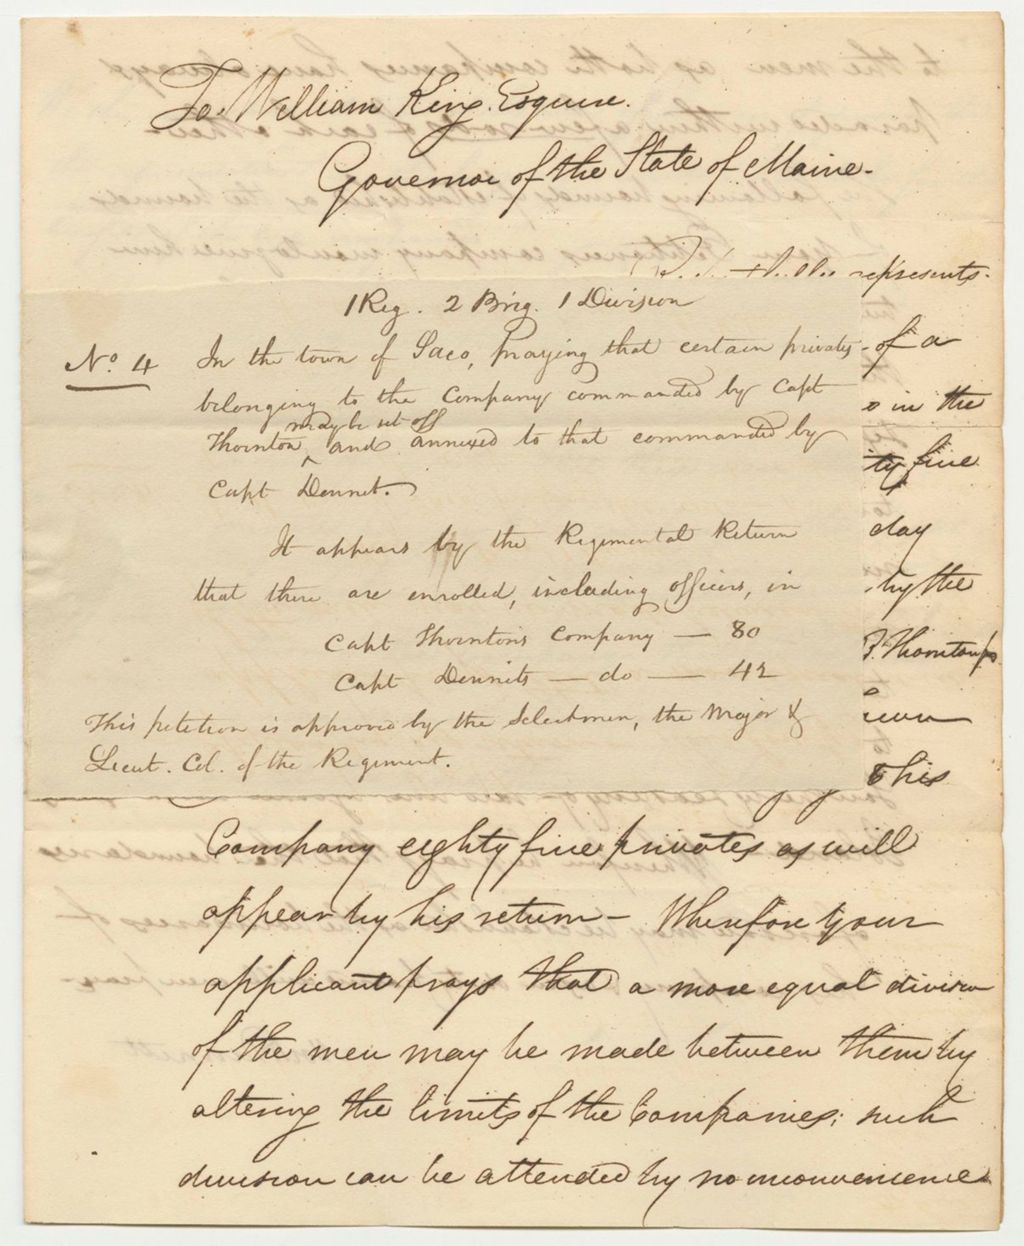 To William King Esquire.
Governor of the State of Maine.
represents
1 Reg. 2 Brig. 1 Division
No 4
In the town of Saco, praying that certain privates
belonging to the Company commanded by Capt
may be set off
Thornton ^ and annexed to that commanded by
Capt Dennet.
It appears by the Regimental Return
that there are enrolled, including officers, in
Capt Thorntons Company — 80
Capt Dennets — do — 42
This petition is approved by the Selectmen, the Major &
Lieut. Col. of the Regiment.
of a
in the
ty five
day
by the
Thorntons
his
Company eighty five privates as will
appear by his return – Wherefore your
applicant prays that a more equal division
of the men may be made between them by
altering the limits of the Companies; such
division can be attended by no inconvenience